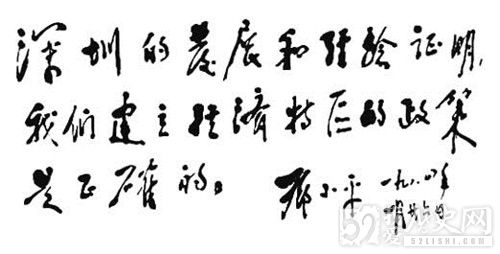 深圳的发展和经验证明,
我们建立经济特区的政策
是正确的。 邓小平 一九八四年
一月廿六日
52LISHI.COM